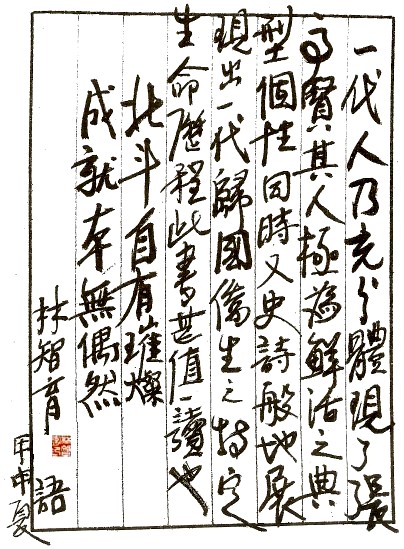 一代人乃充分體現了張
高賢其人極為鮮活之典
型個性同時又史詩般地展
現出一代歸國僑生之特定
生命歷程此書甚值一讀也
北斗自有璀燦
成就本無偶然
林智育 語
甲申夏